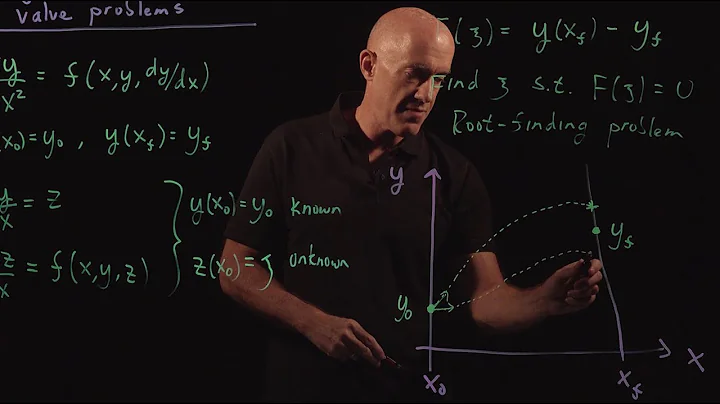 value problems
y/x² = f(x, y, dy/dx)
(x₀) = y₀ , y(x_f) = y_f
y/x = z
z/x = f(x, y, z)
y(x₀) = y₀ known
z(x₀) = ζ unknown
F(ζ) = y(x_f) − y_f
Find ζ s.t. F(ζ) = 0
Root-finding problem
y
y_f
y₀
x₀
x_f
x